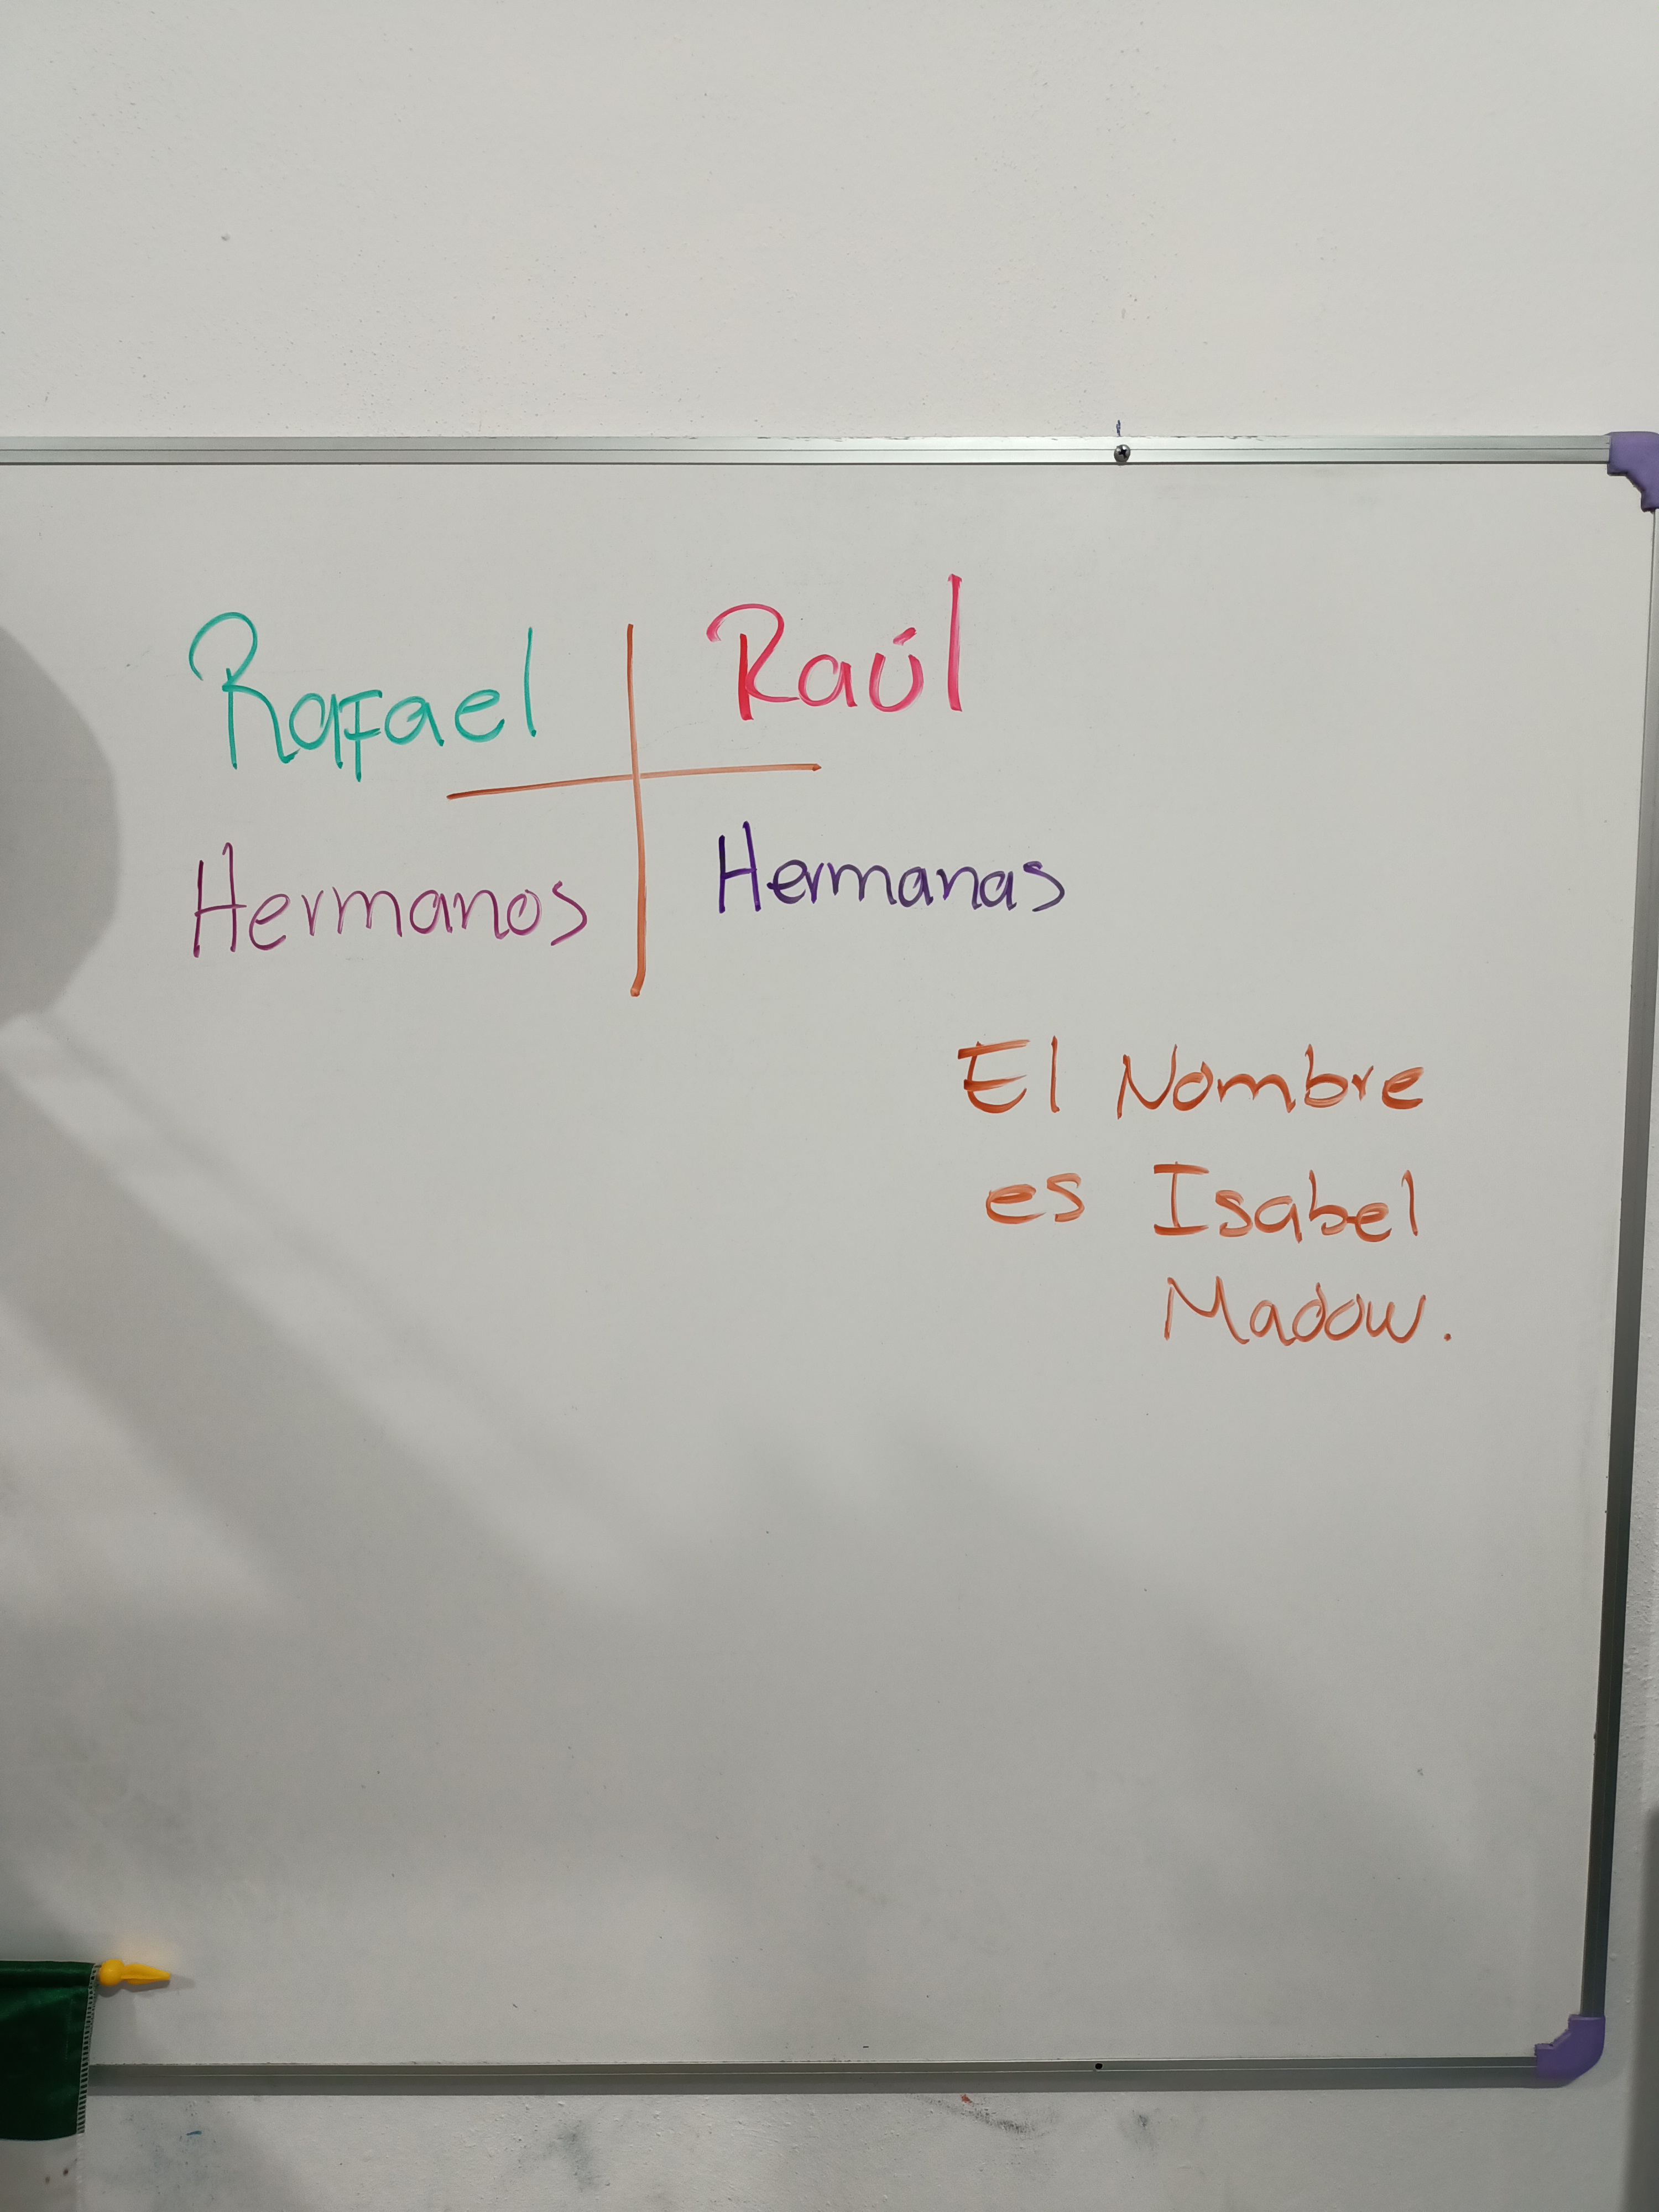 Rafael Raúl
Hermanos Hermanas
El Nombre
es Isabel
Madow.